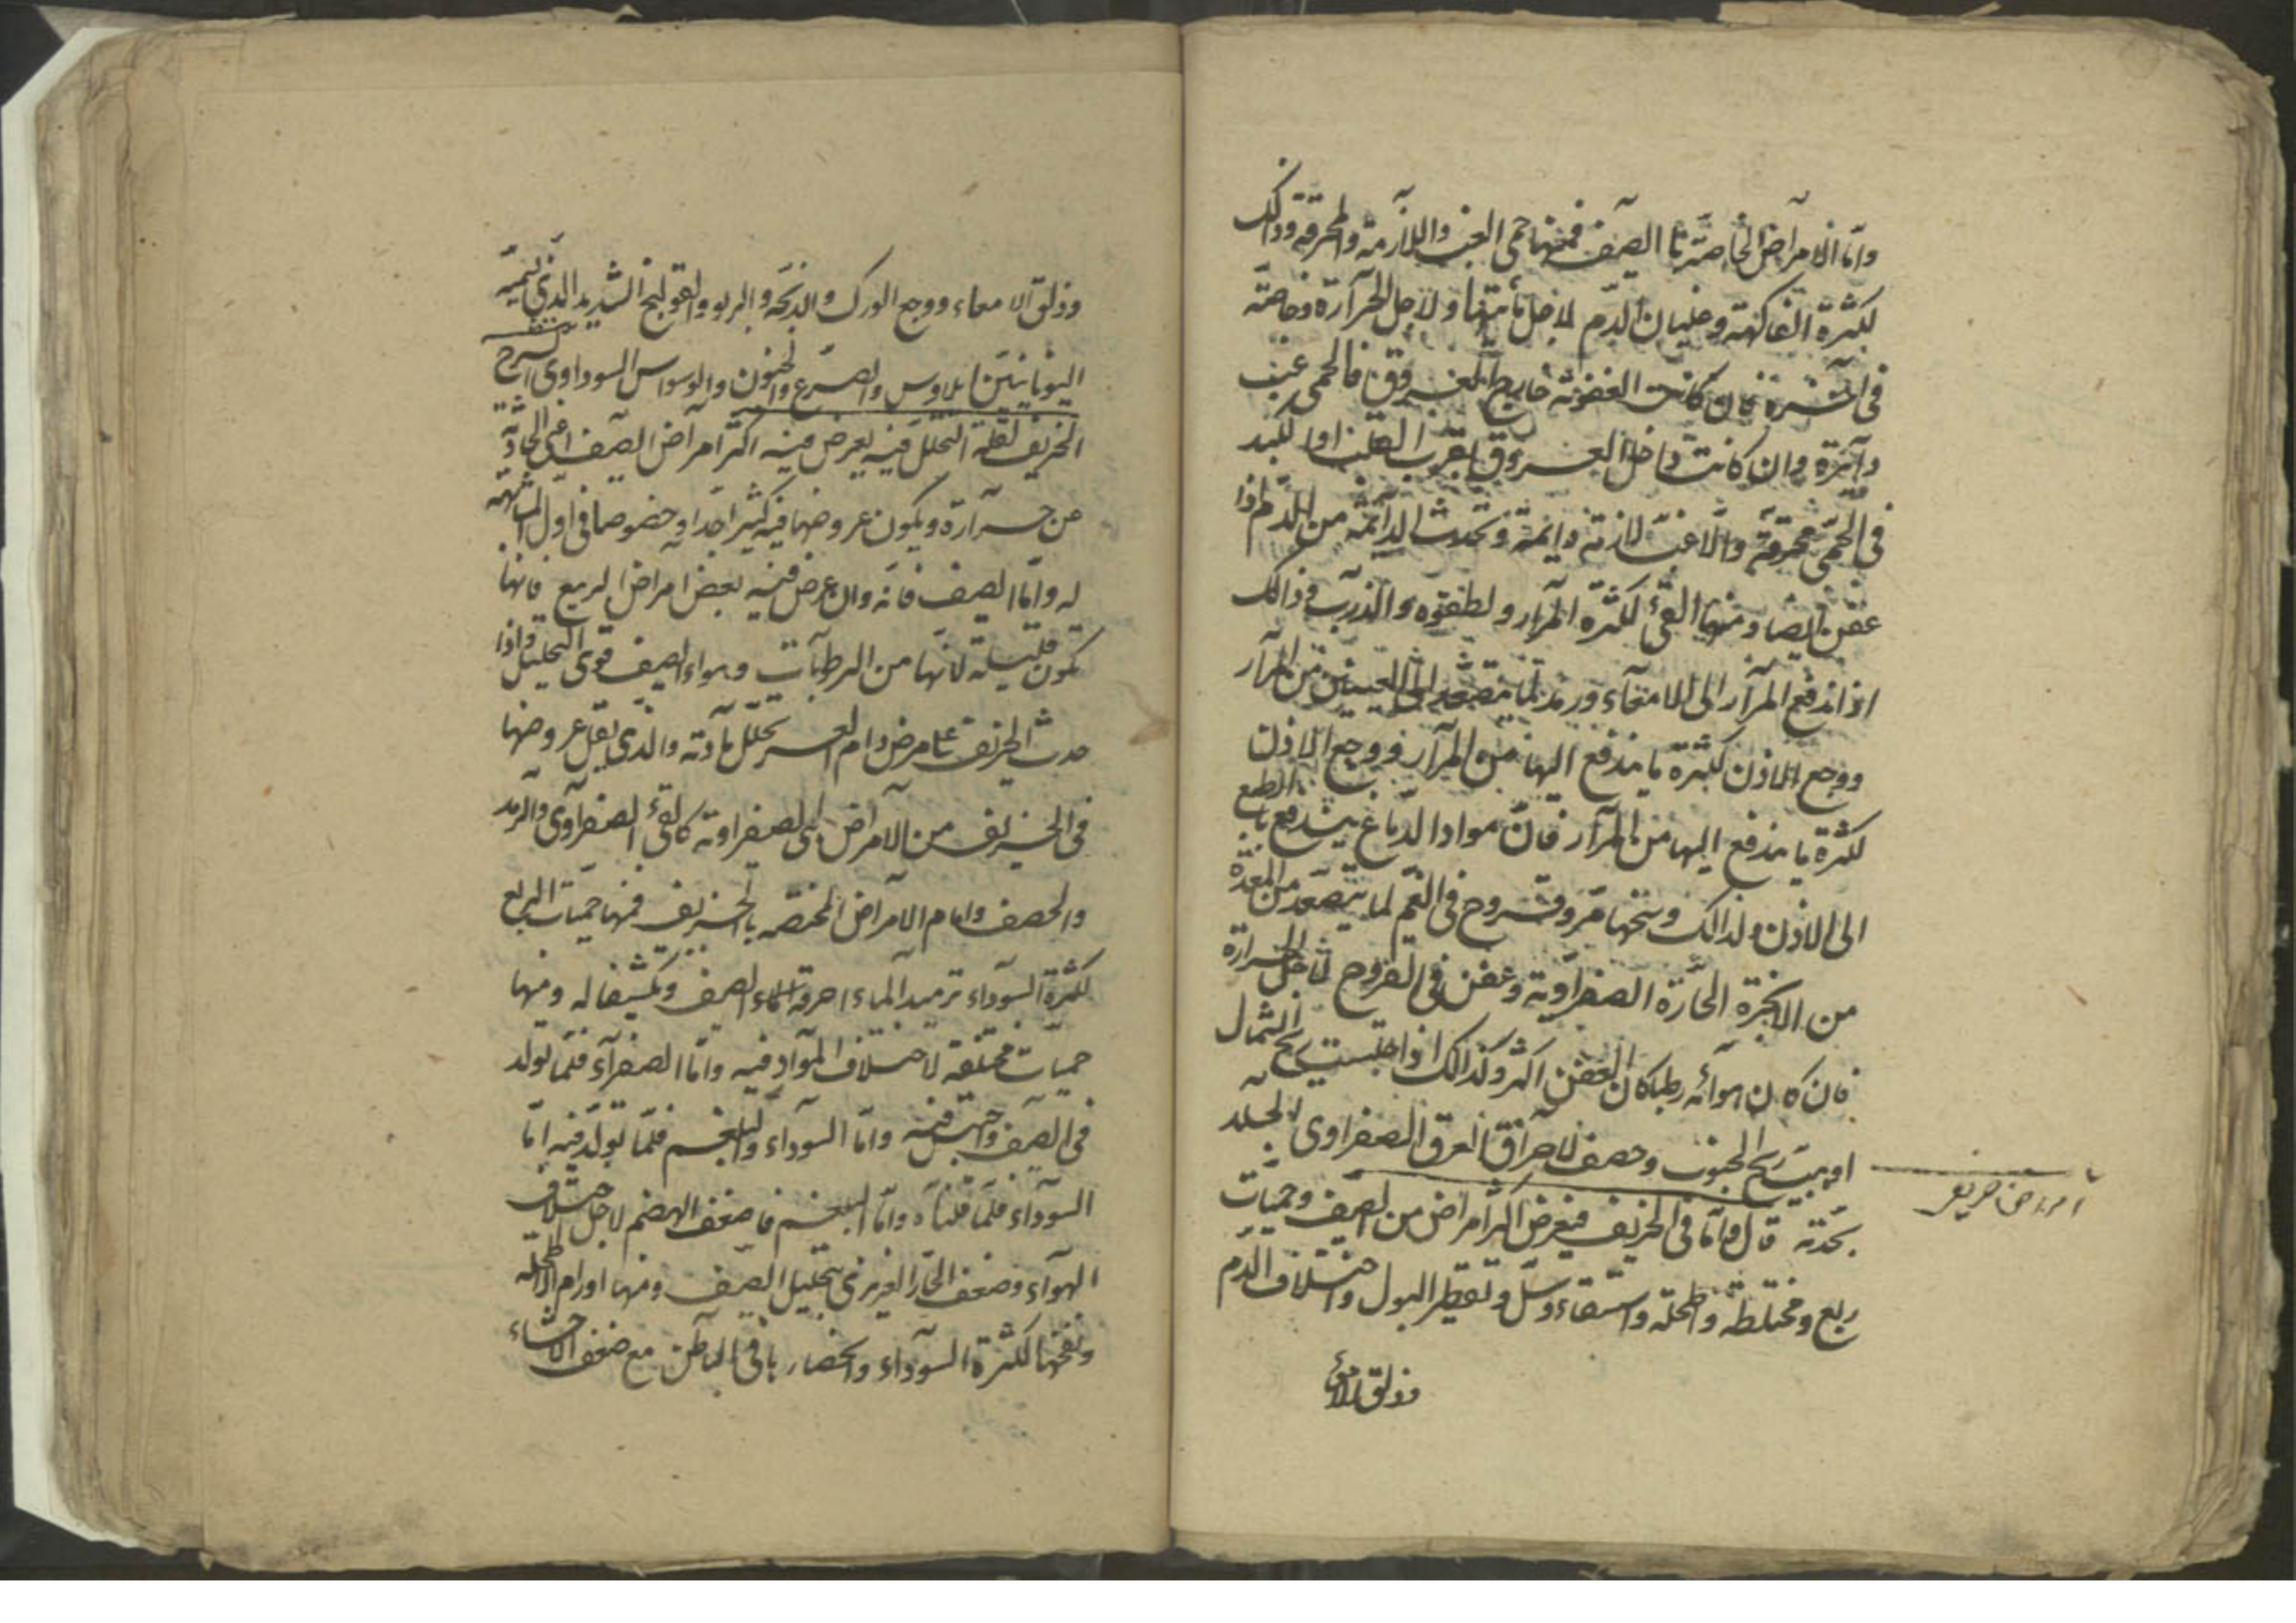 واما الامراض الخاصة بالصيف فمنها حمى الغب واللازمة والمحرقة وذالك
لكثرة الفاكهة وغليان الدم لاجل مائيتها ولاجل الحرارة وخاصة
فى آخره فان كانت العفونة خارج العروق فالحمى غب
دآئرة وان كانت داخل العروق بقرب القلب او الكبد
فى الحمى محرقة والا غب لازمة دايمة وتحدث الدآئمة من الدم اذا
عفن ايضا ومنها القئ لكثرة المرار ولطفوه والذرب وذالك
اذا اندفع المرآر الى الامعآء ورمد لما يتصعد الى العينين من المرآر
ووجع الاذن لكثرة ما يندفع اليها من المرآر ووجع الاذن
لكثرة ما يندفع اليها من المرآر فان مواد الدماغ يندفع بالطبع
الى الاذن ولذالك وسخها مر وقروح فى الفم لما يتصعد من المعدة
من الابخرة الحارة الصفراوية وعفن فى القروح لاجل الحرارة
فان كان هوآئه رطبا كان العفن اكثر وكذالك اذا احتبست ريح الشمال
او هبت ريح الجنوب وحصف لاحراق العرق الصفراوى الجلد
بحدته قال واما فى الخريف فيعرض اكثر امراض من الصيف وحميات
ربع ومختلطة واطحلة واستسقاء وسل وتقطير البول واختلاف الدم
وزلق الامعآ
امراض خريف
وزلق الامعاء ووجع الورك والذبحة والربو والقولنج الشديد الذى يسميه
اليونانيين ايلاوس والصرع والجنون والوسواس السوداوى الشرح
الخريف لقلة التحلل فيه يعرض فيه اكثر امراض الصيف اعنى الحادثة
عن حرآرة ويكون عروضها فيه كثيرا جدا وخصوصا فى اول المشابهة
له واما الصيف فانه وان عرض فيه بعض امراض الربيع فانها
تكون قليلة لانها من الرطوبات وهواء الصيف قوى التحليل واذا
حدث الخريف على مرض دام لعسر تحلل مادته والذى يقل عروضها
فى الخريف من الامراض هى الصفراوية كالقئ الصفرآوى والرمد
والحصف واما الامراض المختصة بالخريف فمنها حميات الربع
لكثرة السودآء ترميد الماء احرقة الماء الصيف وتكثيفا له ومنها
حميات مختلفة لاختلاف المواد فيه واما الصفرآء فلما تولد
فى الصيف واحتبس فيه واما السودآء والبلغم فلما تولد فيه اما
السودآء فلما قلناه واما البلغم فاضعف الهضم لاجل اختلاف
الهوآء وضعف الحار الغريزى بتحليل الصيف ومنها اورام الاطحلة
ونفخها لكثرة السودآء وانحصارها فى الباطن مع ضعف الاحشاء